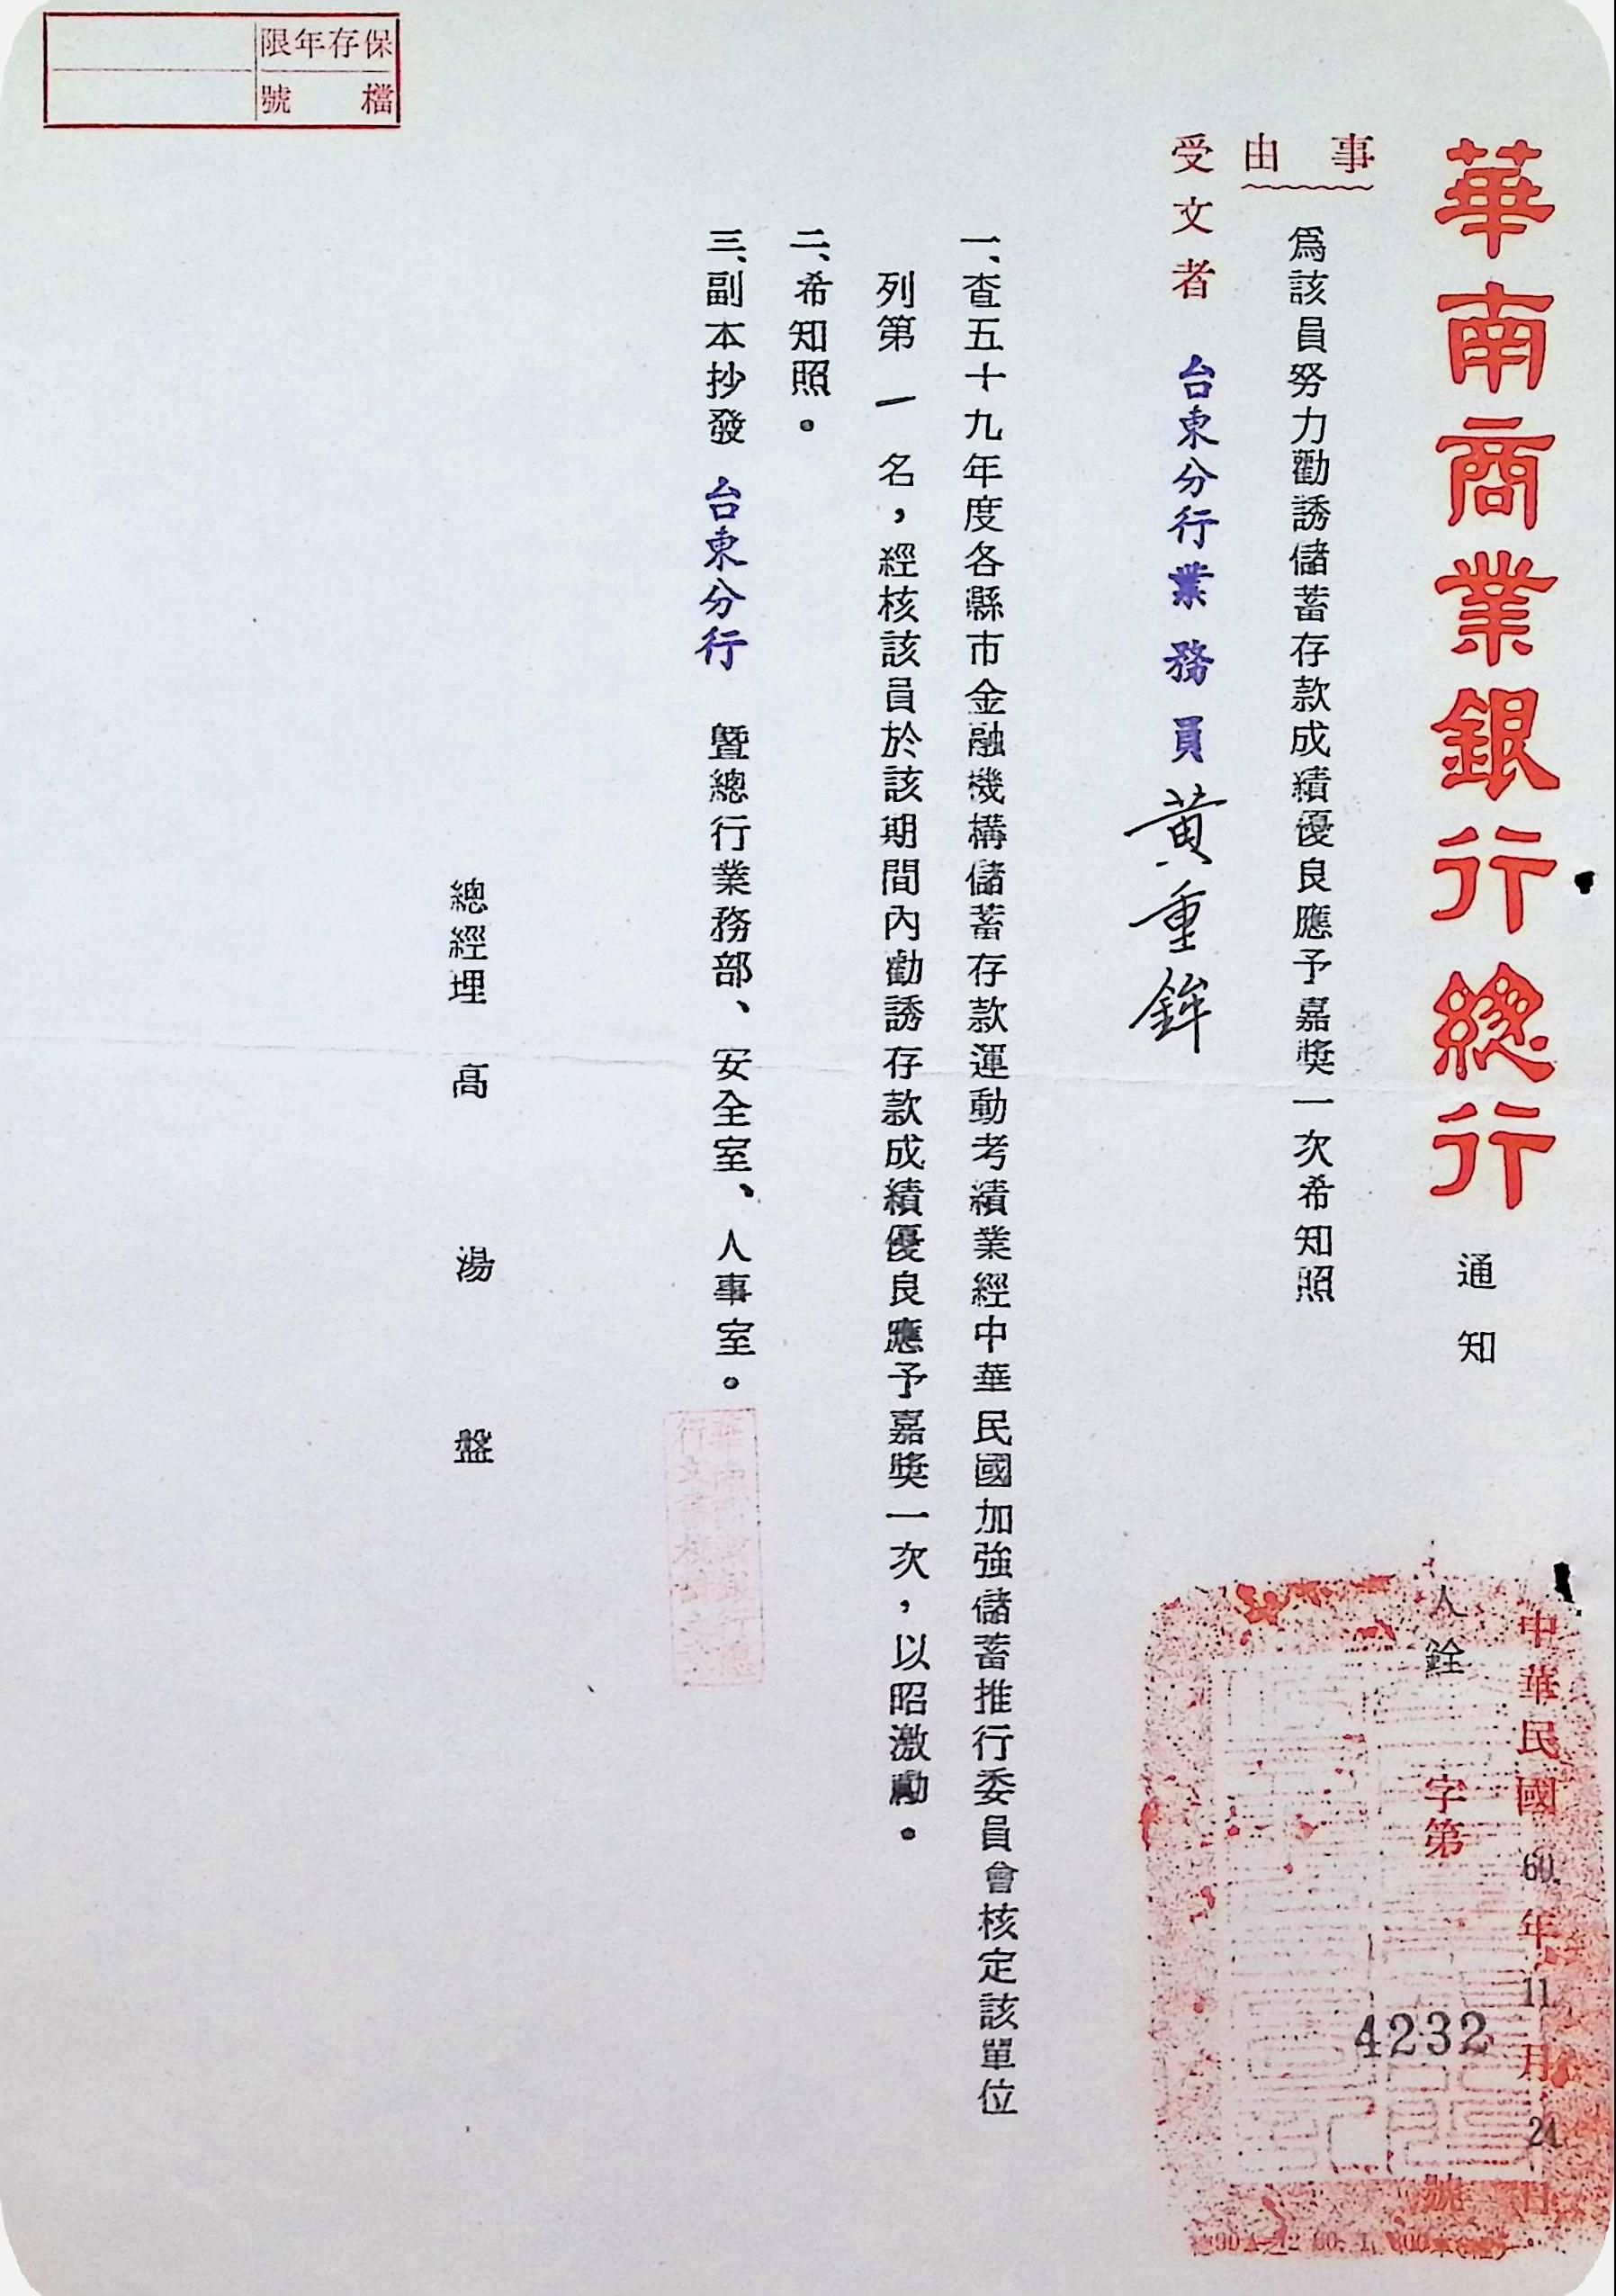 華南商業銀行總行 通知
中華民國60年11月24日
人銓 字第4232號
事由
為該員努力勸誘儲蓄存款成績優良應予嘉獎一次希知照
受文者 台東分行業務員黃重鉾
一、查五十九年度各縣市金融機構儲蓄存款運動考績業經中華民國加強儲蓄推行委員會核定該單位
列第一名,經核該員於該期間內勸誘存款成績優良應予嘉獎一次,以昭激勵。
二、希知照。
三、副本抄發 台東分行 暨總行業務部、安全室、人事室。
總經理 高湯盤
保存年限
檔號